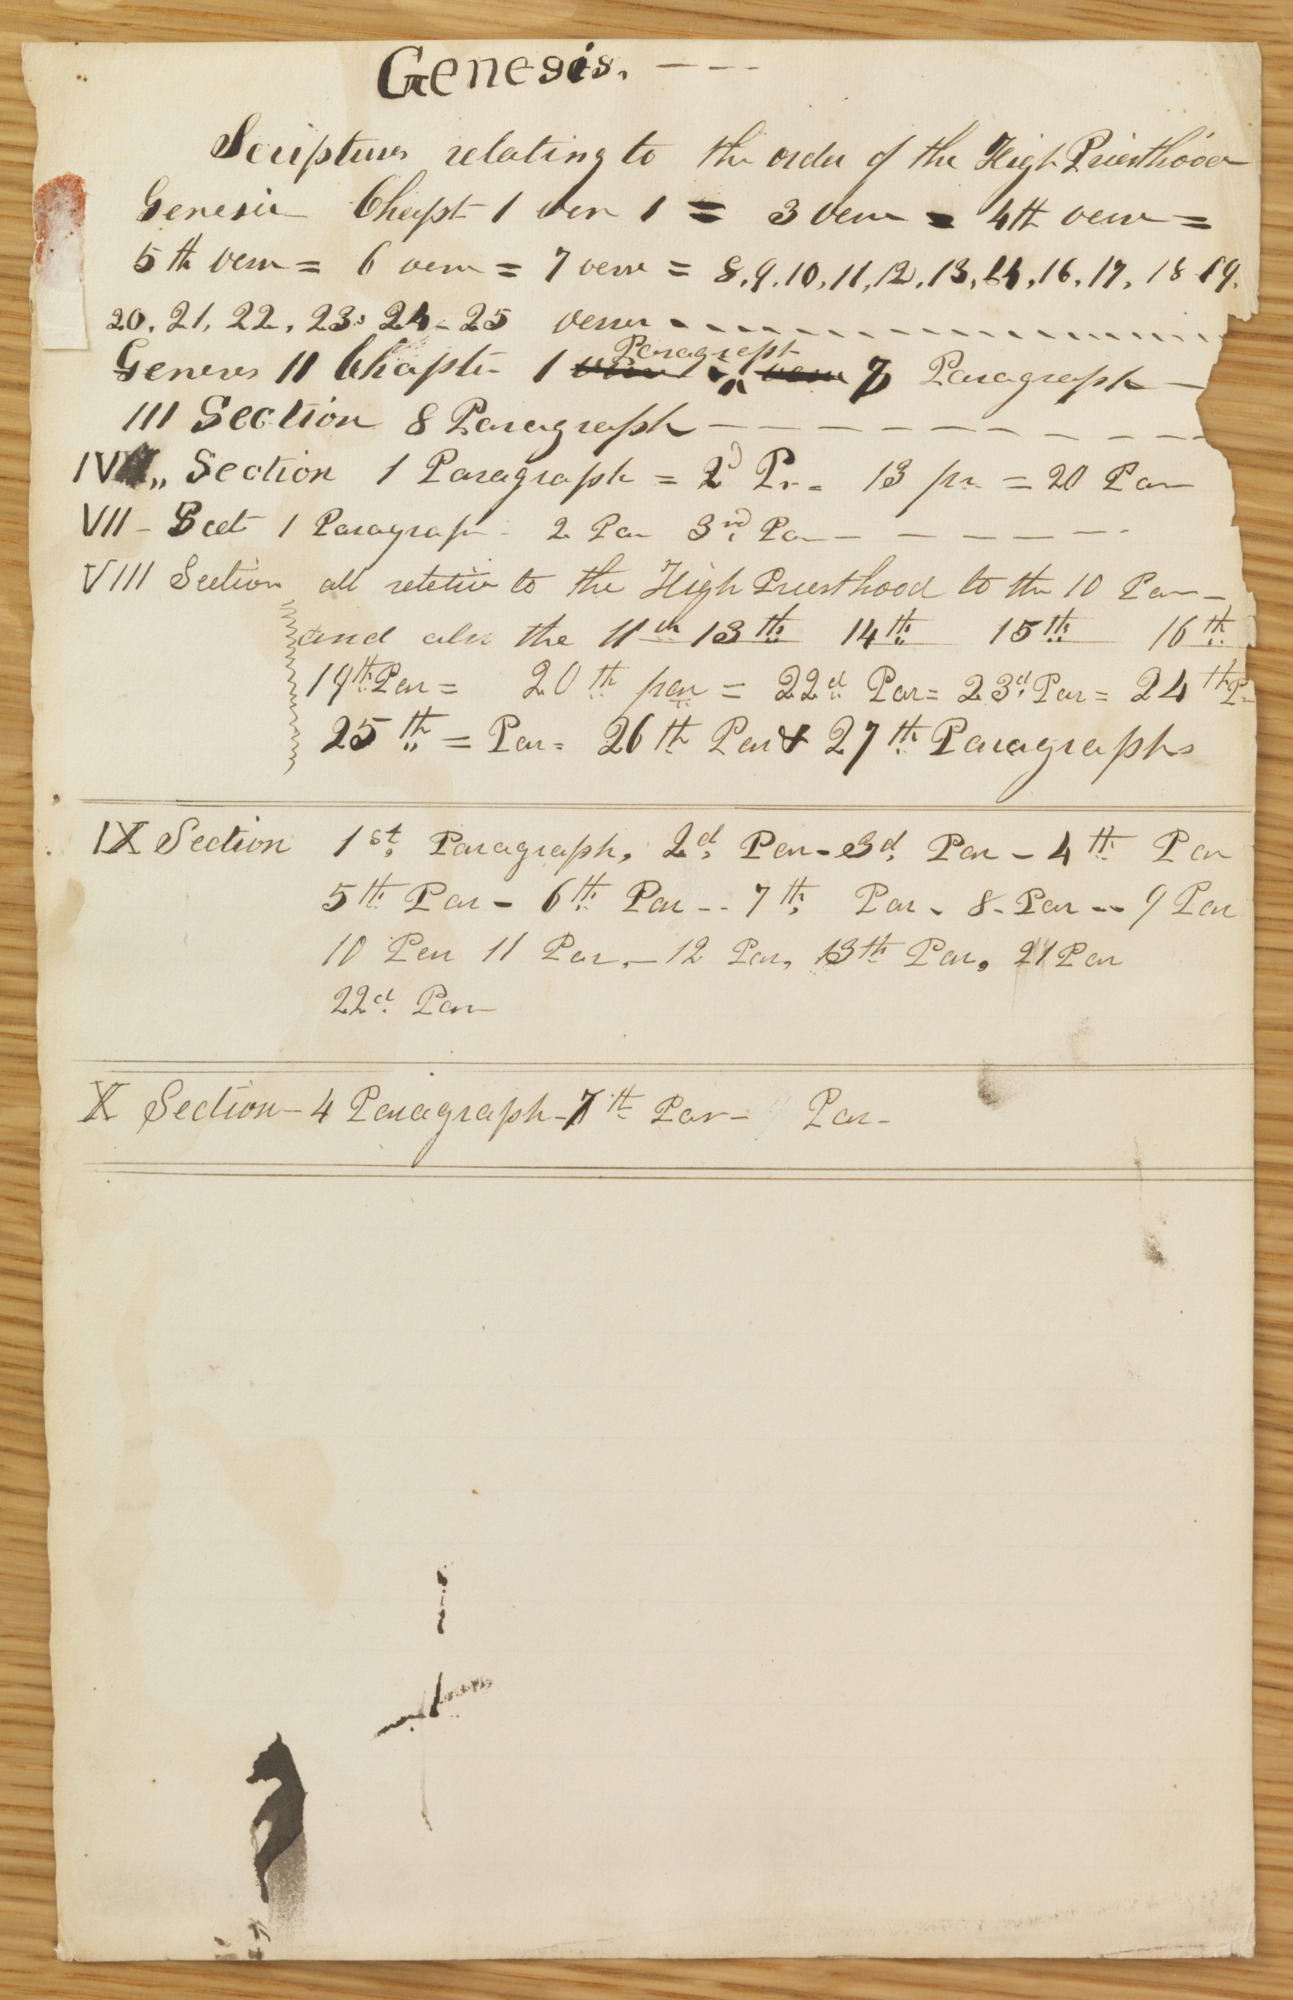 Genesis. - - -
Scriptures relating to the order of the High Priesthood
Genesis Chapt 1 vers 1 = 3 vers = 4th vers =
5th vers = 6 vers = 7 vers = 8, 9, 10, 11, 12, 13, 14, 16, 17, 18 19,
20, 21, 22, 23, 24 - 25 verses - - - - - - - - - - - -
Paragraph
Geneses II Chapter 1 7 Paragraph -
III Section 8 Paragraph - - - - - - - - - -
IV „ Section 1 Paragraph = 2d Pr. = 13 pr. = 20 Par
VII - Sect 1 Paragraph - 2 Par 3rd Par - - - - - -
VIII Section all relative to the High Priesthood to the 10 Par -
and also the 11th 13th 14th 15th 16th
19th Par = 20th par = 22d Par = 23d Par = 24th P-
25th = Par = 26th Par & 27th Paragraphs
IX Section 1st, Paragraph, 2d, Par - 3d, Par - 4th Par
5th Par - 6th Par -- 7th, Par - 8 - Par -- 9 Par
10 Par 11 Par, - 12 Par, 13th Par, 21 Par
22d Par
X Section - 4 Paragraph - 7th Par - Par -